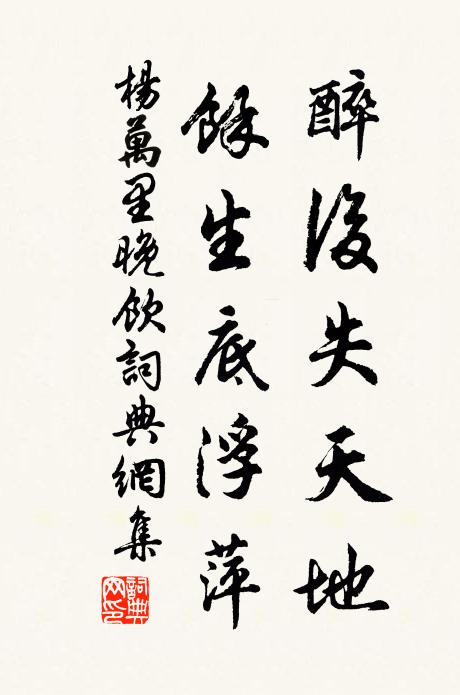 醉後失天地
餘生底浮萍
楊萬里晚飲詞典網集
詞典网印